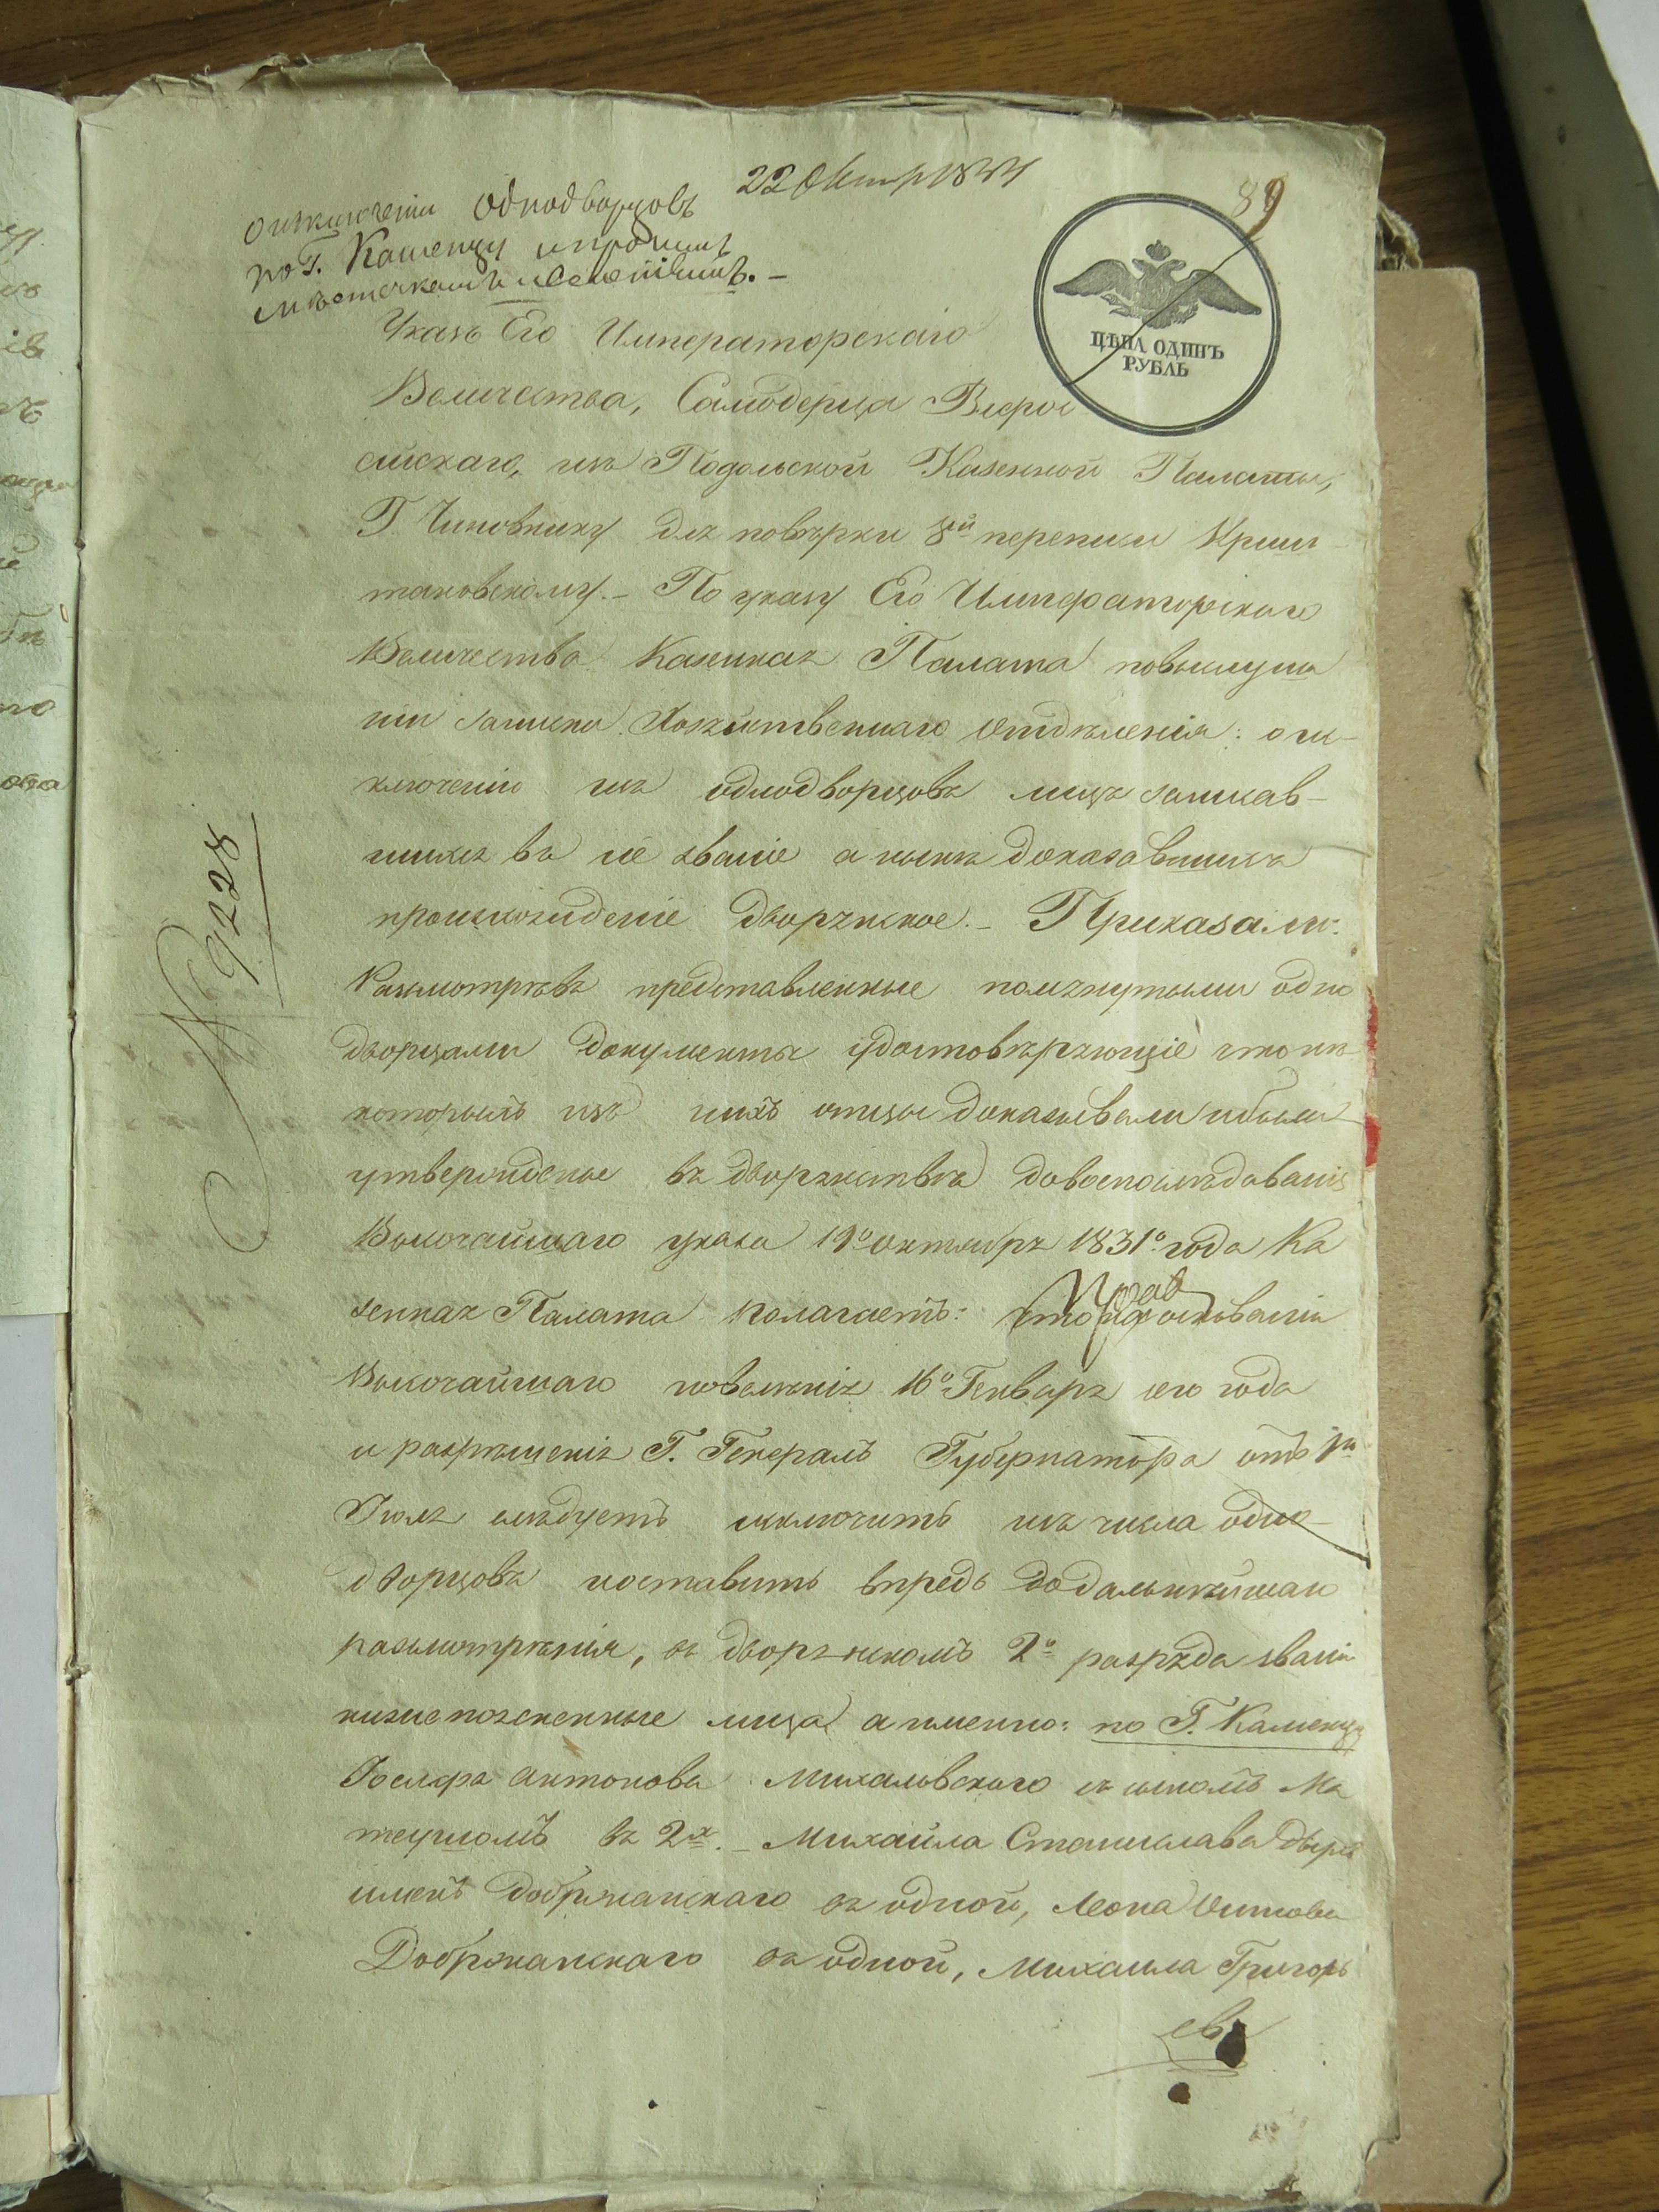 22 Октяр 1834
89
о изключеніи однодворцовъ
по Г. Каменцу и прочимъ
мѣстечкамъ и селеніямъ. –
ЦѢНА ОДИНЪ
РУБЛЬ
Указъ Его Императорскаго
Величества, Самодержца Всерос
сійскаго, изъ Подольской Казенной Палаты,
Г. Чиновнику для повѣрки 8й переписи Криш
тановскому. – По указу Его Императорскаго
Величества Казенная Палата по выслуша
ніи записки Хозяйственнаго Отдѣленія: о ис-
ключеніи изъ однодворцовъ лицъ записав-
шихся въ сіе званіе а нынѣ доказавшихъ
происхожденіе дворянское. – Приказали:
Разсмотрѣвъ представленные помянутыми одно
дворцами документы удостовѣряющіе что нѣ
которыхъ изъ нихъ отцы доказывали и были
утверждены въ дворянствѣ до воспослѣдованія
Высочайшаго указа 19о октября 1831о года Ка
зенная Палата полагаетъ: что на основаніи
Высочайшаго повелѣнія 16о Генваря сего года
и разрѣшенія Г. Генералъ Губернатора отъ
Іюля слѣдуетъ исключить изъ числа одно-
дворцовъ и оставить впредь до дальнѣйшаго
разсмотрѣнія, въ дворянскомъ 2о разряда званіи
нижепоясненные лица а именно: по Г. Каменцу
Іосифа Антонова Михаловскаго съ сыномъ Ма
теушомъ въ 2х. – Михайла Станислава двухъ
именъ Добржанскаго въ одной, Леона
Добржанскаго въ одной, Михаила Григорь
ева
№ 9228